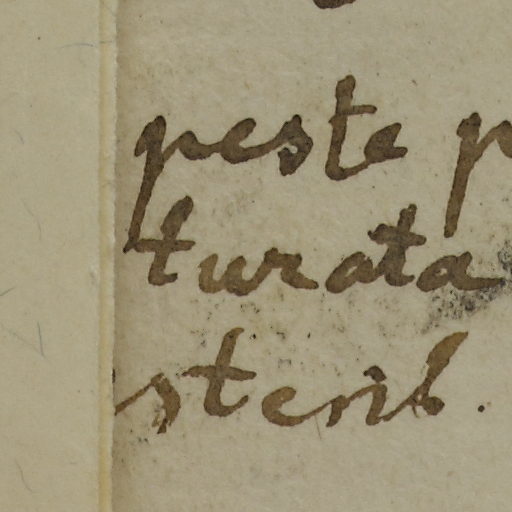 peste p
turata
steril.